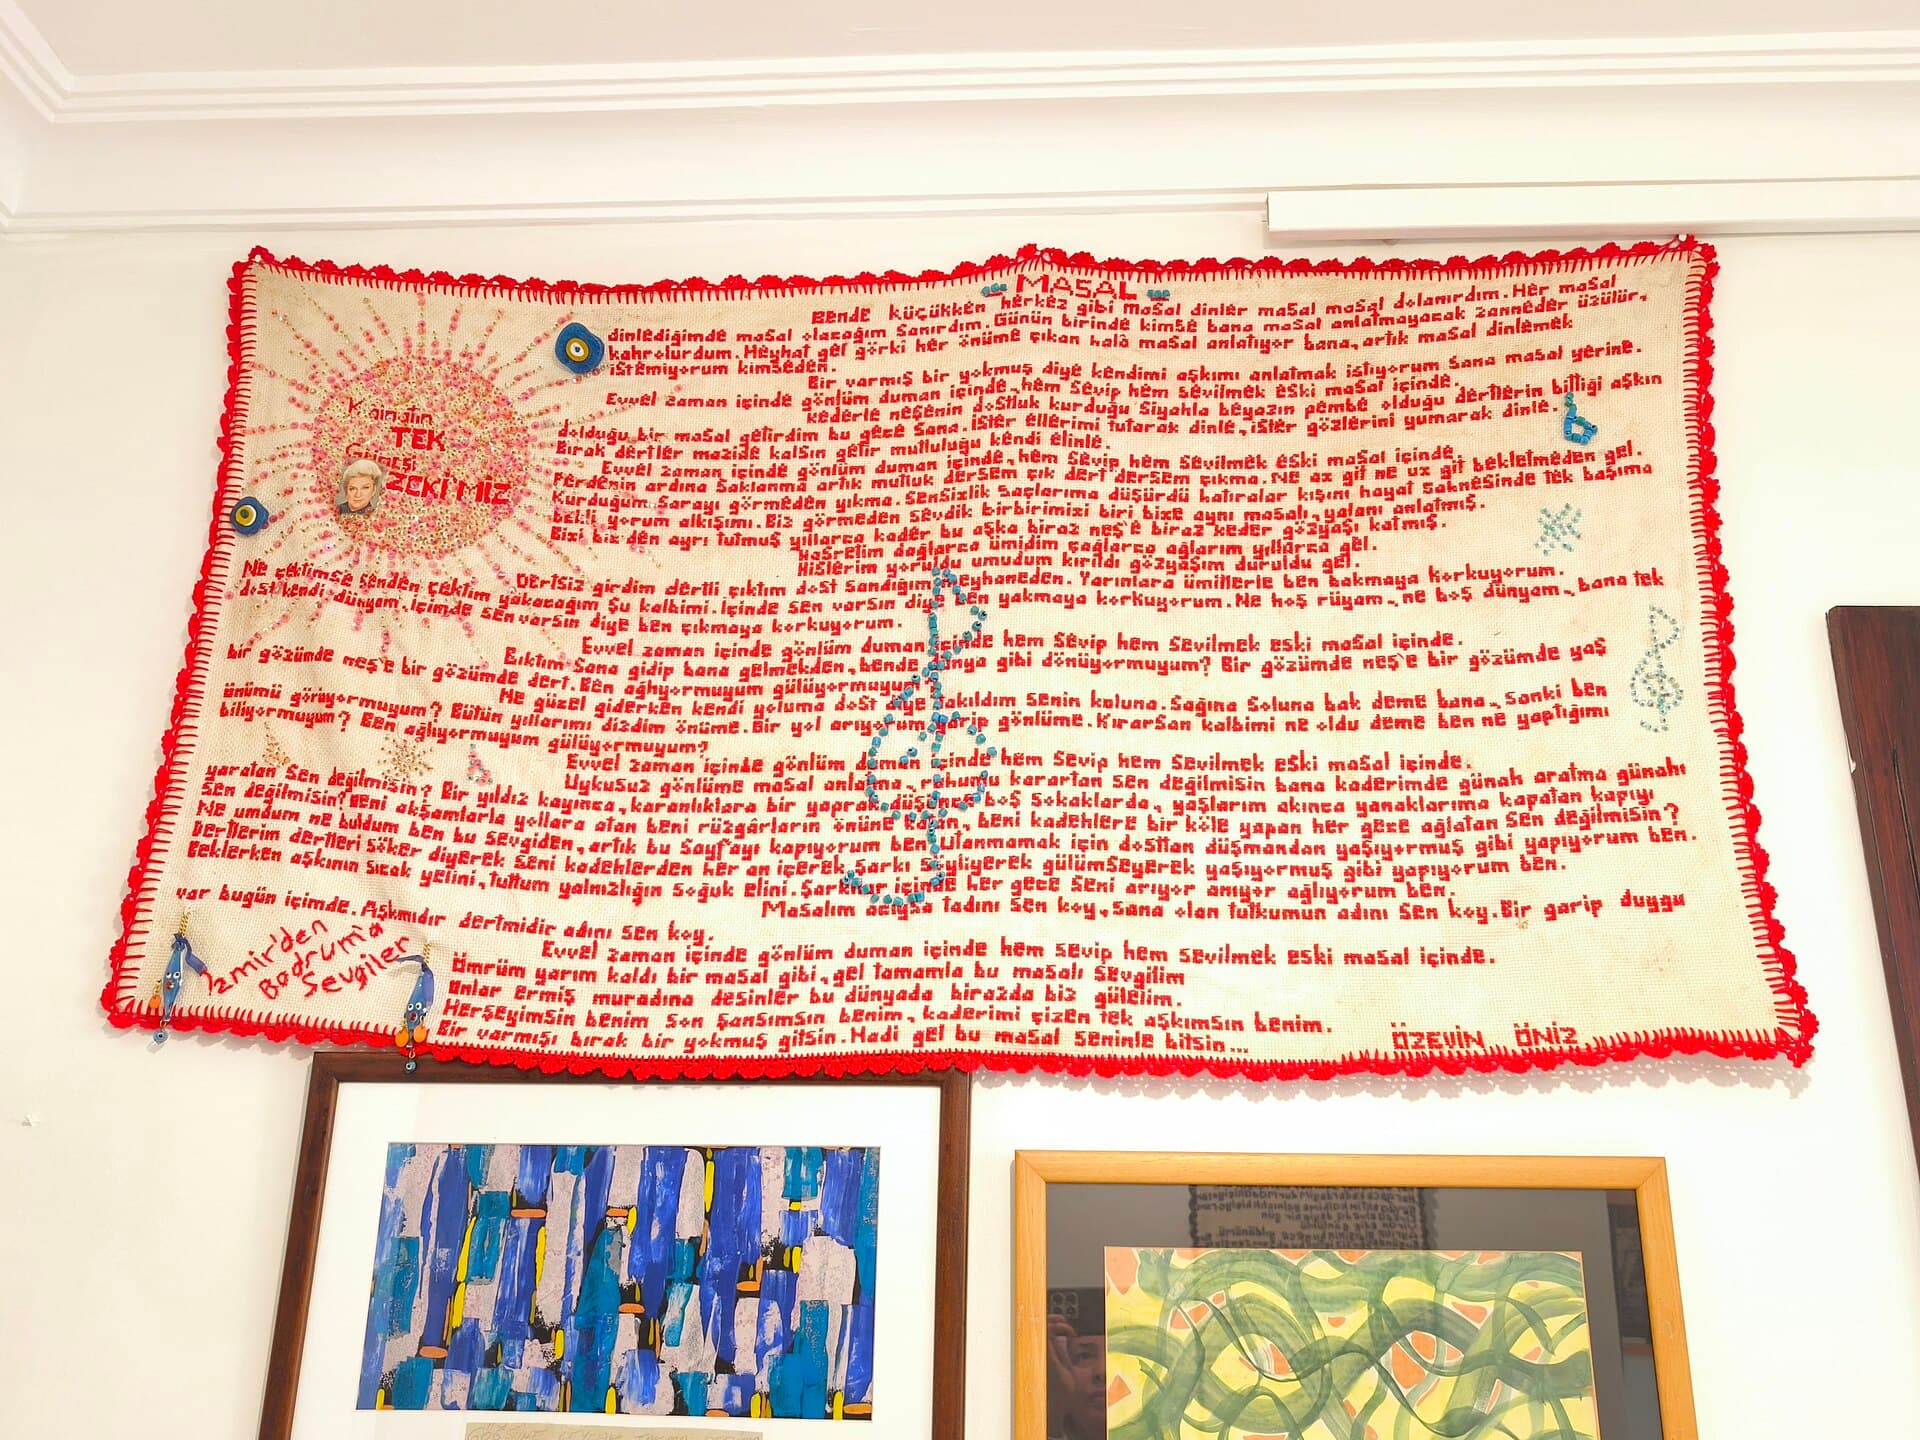 - MASAL -
Bende küçükken herkez gibi masal dinler masal masal dolanırdım. Her masal
dinlediğimde masal olacağım sanırdım. Günün birinde kimse bana masal anlatmayacak zanneder üzülür,
kahrolurdum. Heyhat gel görki her önüme çıkan halâ masal anlatıyor bana, artık masal dinlemek
istemiyorum kimseden.
Bir varmış bir yokmuş diye kendimi aşkımı anlatmak istiyorum sana masal yerine.
Evvel zaman içinde gönlüm duman içinde, hem sevip hem sevilmek eski masal içinde.
kederle neşenin dostluk kurduğu siyahla beyazın pembe olduğu dertlerin bittiği aşkın
dolduğu bir masal getirdim bu gece sana. İster ellerimi tutarak dinle, ister gözlerini yumarak dinle.
Bırak dertler mazide kalsın getir mutluluğu kendi elinle.
Evvel zaman içinde gönlüm duman içinde, hem sevip hem sevilmek eski masal içinde.
Perdenin ardına saklanma artık mutluk dersem çık dert dersem çıkma. Ne az git ne uz git bekletmeden gel.
Kurduğum sarayı görmeden yıkma. Sensizlik saçlarıma düşürdü hatıralar kışını hayat sahnesinde tek başıma
bekli yorum alkışımı. Biz görmeden sevdik birbirimizi biri bize aynı masalı, yalanı anlatmış.
Bizi biz'den ayrı tutmuş yıllarca kader bu aşka biraz neş'e biraz keder gözyaşı katmış.
Hasretim dağlarca ümidim çağlarca ağlarım yıllarca gel.
Hislerim yoruldu umudum kırıldı gözyaşım duruldu gel.
Dertsiz girdim dertli çıktım dost sandığım meyhaneden. Yarınlara ümitlerle ben bakmaya korkuyorum.
Ne çektimse senden çektim yakacağım şu kalbimi. İçinde sen varsın diye ben yakmaya korkuyorum. Ne hoş rüyam, ne boş dünyam, bana tek
dost kendi dünyam, içimde sen varsın diye ben çıkmaya korkuyorum.
Evvel zaman içinde gönlüm duman içinde hem sevip hem sevilmek eski masal içinde.
Bıktım sana gidip bana gelmekden, bende dünya gibi dönüyormuyum? Bir gözümde neş'e bir gözümde yaş
bir gözümde neş'e bir gözümde dert. Ben ağlıyormuyum gülüyormuyum
Ne güzel giderken kendi yoluma dost diye takıldım senin koluna. Sağına soluna bak deme bana, sanki ben
önümü görüyormuyum? Bütün yıllarımı dizdim önüme. Bir yol arıyorum garip gönlüme. Kırarsan kalbimi ne oldu deme ben ne yaptığımı
biliyormuyum? Ben ağlıyormuyum gülüyormuyum?
Evvel zaman içinde gönlüm duman içinde hem sevip hem sevilmek eski masal içinde.
Uykusuz gönlüme masal anlatma, ruhumu karartan sen değilmisin bana kaderimde günah aratma günahı
yaratan sen değilmisin? Bir yıldız kayınca, karanlıklara bir yaprak düşünce boş sokaklarda, yaşlarım akınca yanaklarıma kapatan kapıyı
sen değilmisin? Beni akşamlarla yollara atan beni rüzgârların önüne katan, beni kadehlere bir köle yapan her gece ağlatan sen değilmisin?
Ne umdum ne buldum ben bu sevgiden, artık bu sayfayı kapıyorum ben utanmamak için dosttan düşmandan yaşıyormuş gibi yapıyorum ben.
Dertlerim dertleri söker diyerek seni kadehlerden her an içerek şarkı söyliyerek gülümseyerek yaşıyormuş gibi yapıyorum ben.
Beklerken aşkının sıcak yelini, tuttum yalnızlığın soğuk elini. Şarkılar içinde her gece seni arıyor anıyor ağlıyorum ben.
Masalım acıysa tadını sen koy, sana olan tutkumun adını sen koy. Bir garip duygu
var bugün içimde. Aşkmıdır dertmidir adını sen koy.
Evvel zaman içinde gönlüm duman içinde hem sevip hem sevilmek eski masal içinde.
Ömrüm yarım kaldı bir masal gibi, gel tamamla bu masalı sevgilim
Onlar ermiş muradına desinler bu dünyada birazda biz gülelim.
Herşeyimsin benim son şansımsın benim, kaderimi çizen tek aşkımsın benim.
Bir varmışı bırak bir yokmuş gitsin. Hadi gel bu masal seninle bitsin...
ÖZEVİN ÖNİZ
Kainatın
TEK
Güneşi
ZEKİ'MİZ
İzmir'den
Bodrum'a
Sevgiler